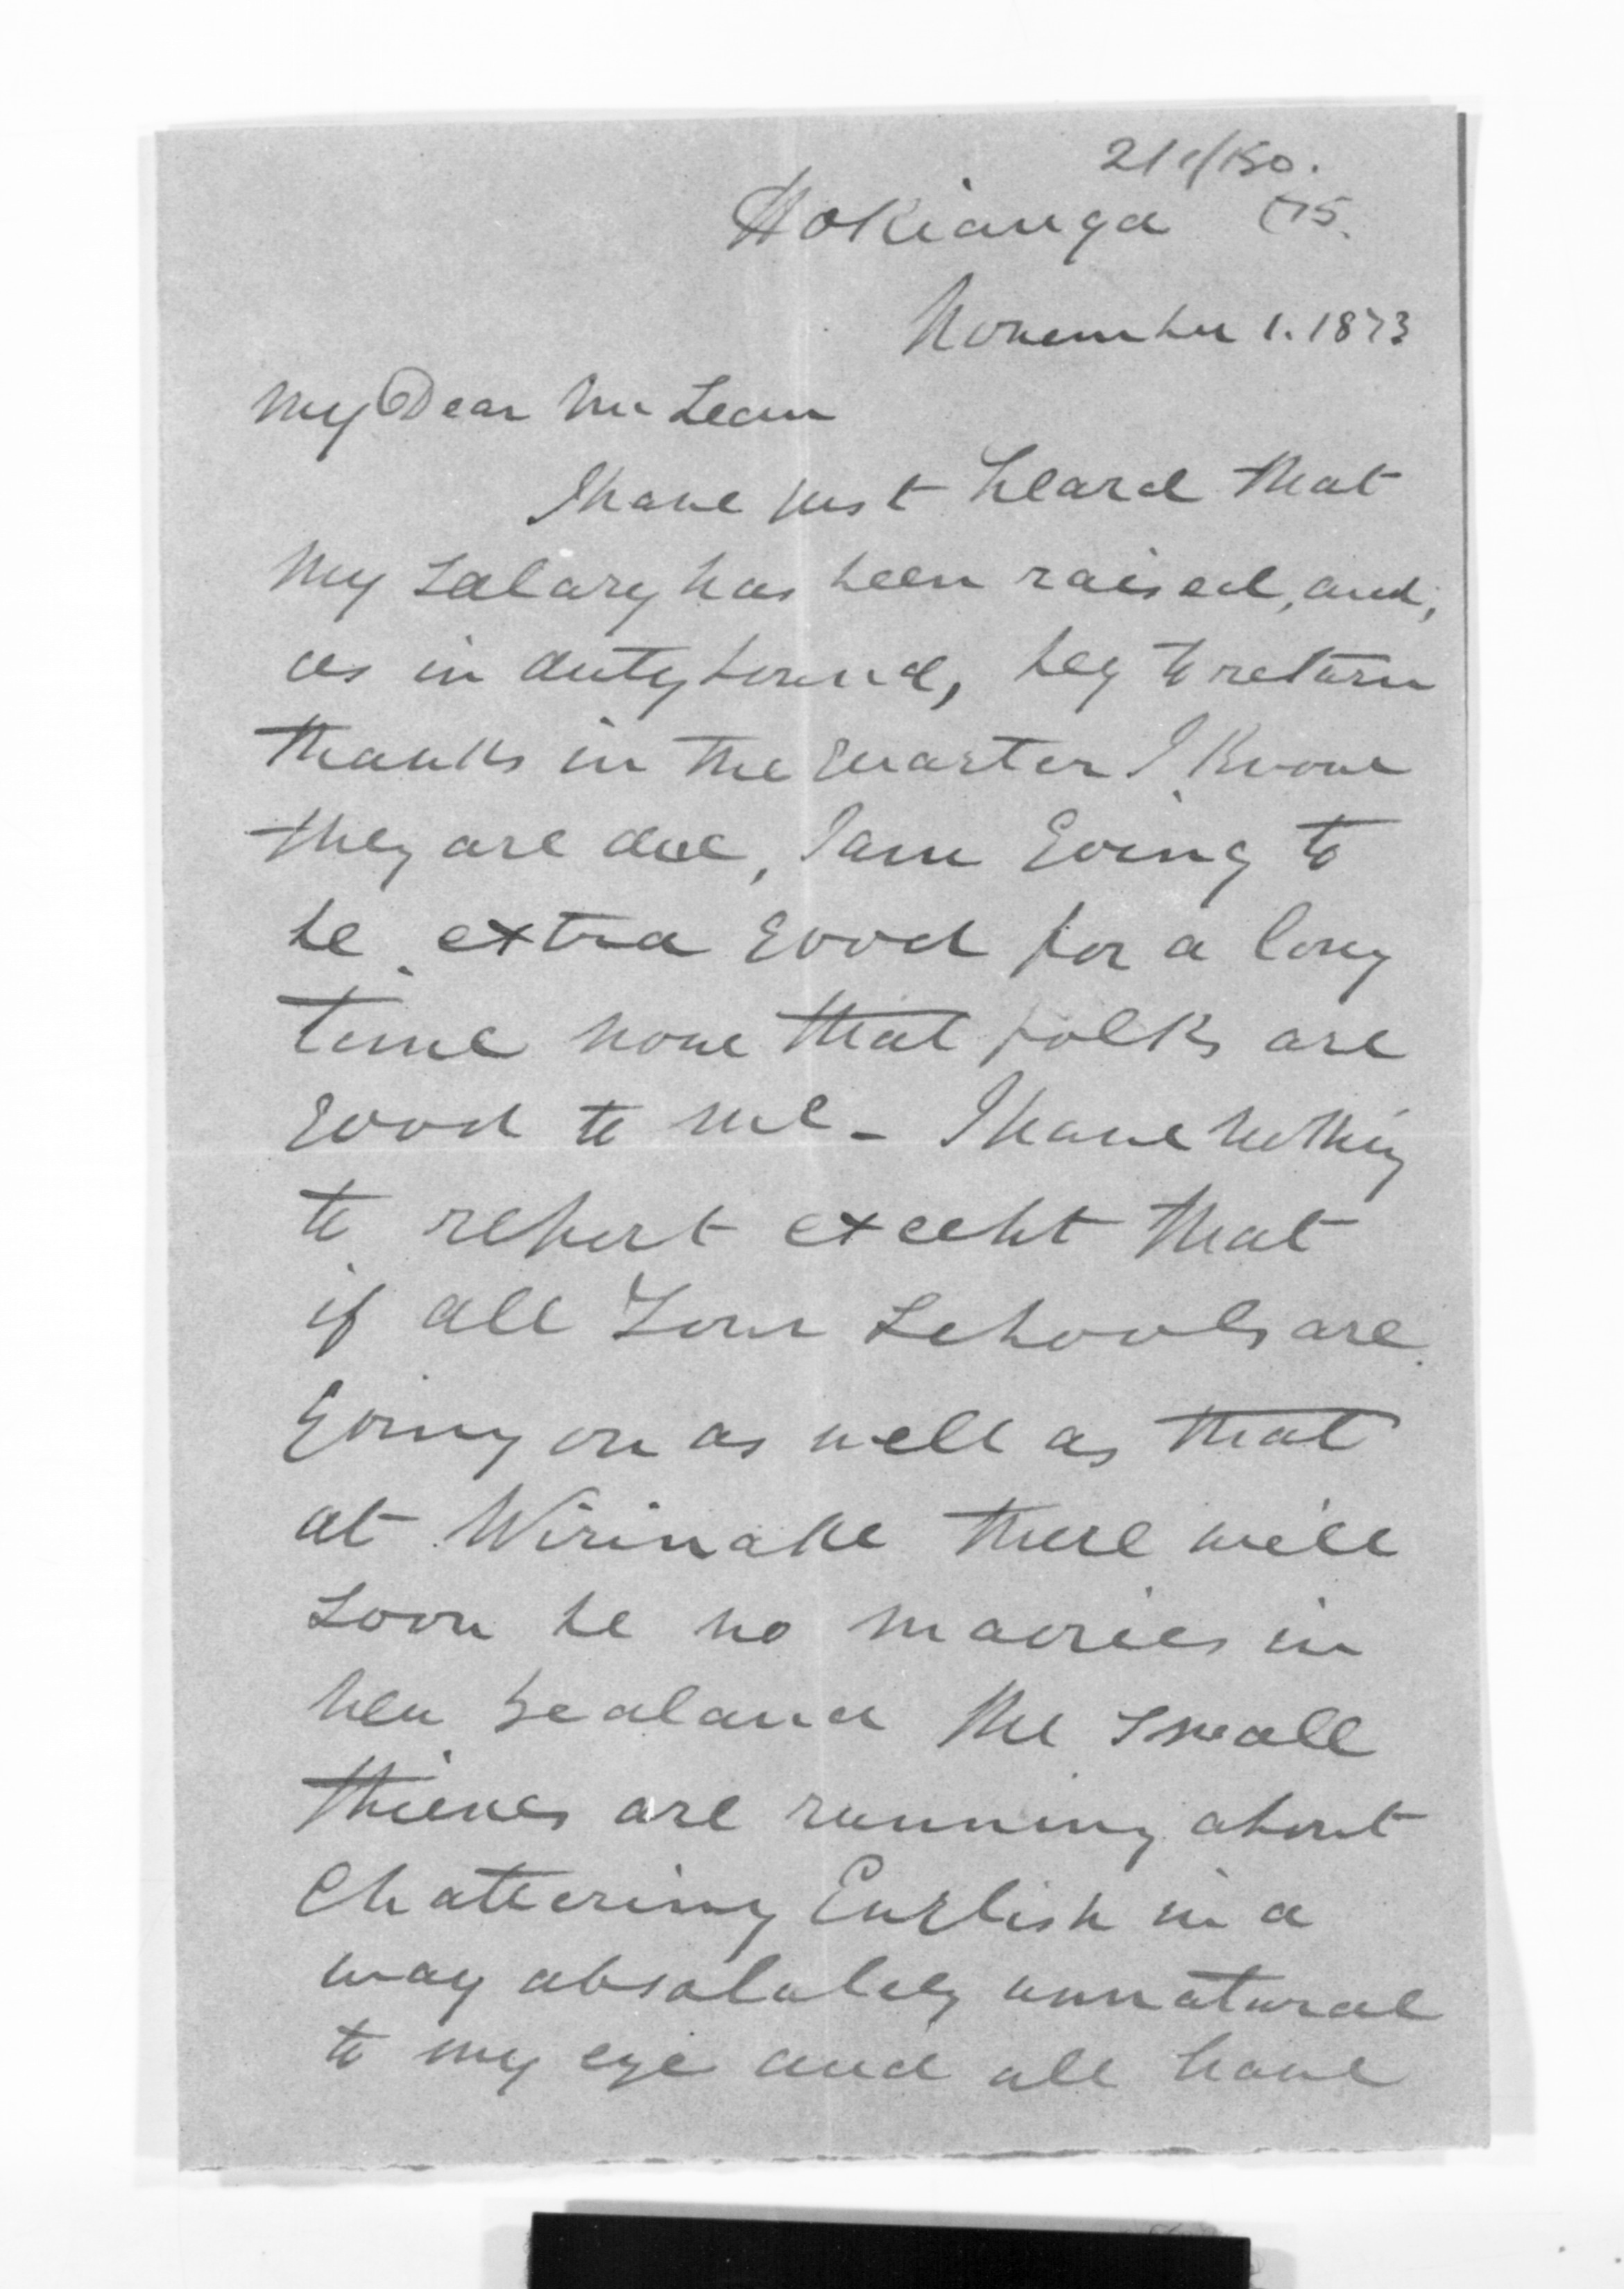 Hokianga
November 1. 1873
My Dear McLean
I have just heard that
my salary has been raised, and,
as in duty bound, beg to return
thanks in the quarter I know
they are due, I am going to
be extra good for a long
time now that folks are
good to me - I have nothing
to report except that
if all Your Schools are
going on as well as that
at Wirinake there will
soon be no maories in
New Zealand the small
thieves are running about
Chattering English in a
way absolutely unnatural
to my eye and all have